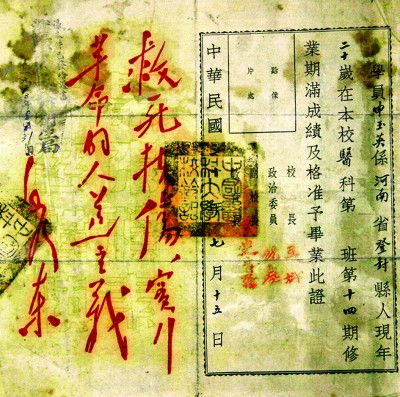 學員申玉英係河南省登封縣人現年
二十歲在本校醫科第 班第十四期修
業期滿成績及格准予畢業此證
校長 王斌
政治委員
黏像
片處
中華民國 七月十五日
救死扶傷,實行
革命的人道主義
毛澤東